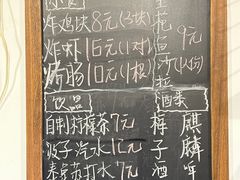 炸鸡块8元(3块)
炸虾15元(1对)
烤肠10元(1根)
饮品
自制柠檬茶7元
波子汽水1元
苏打水7元
花鱼沙拉
9元
(1份)
酒类
梅子酒
麒麟